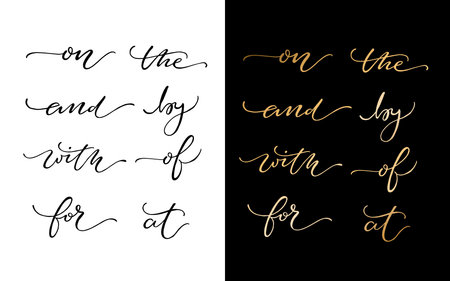 on the
and by
with of
for at
on the
and by
with of
for at